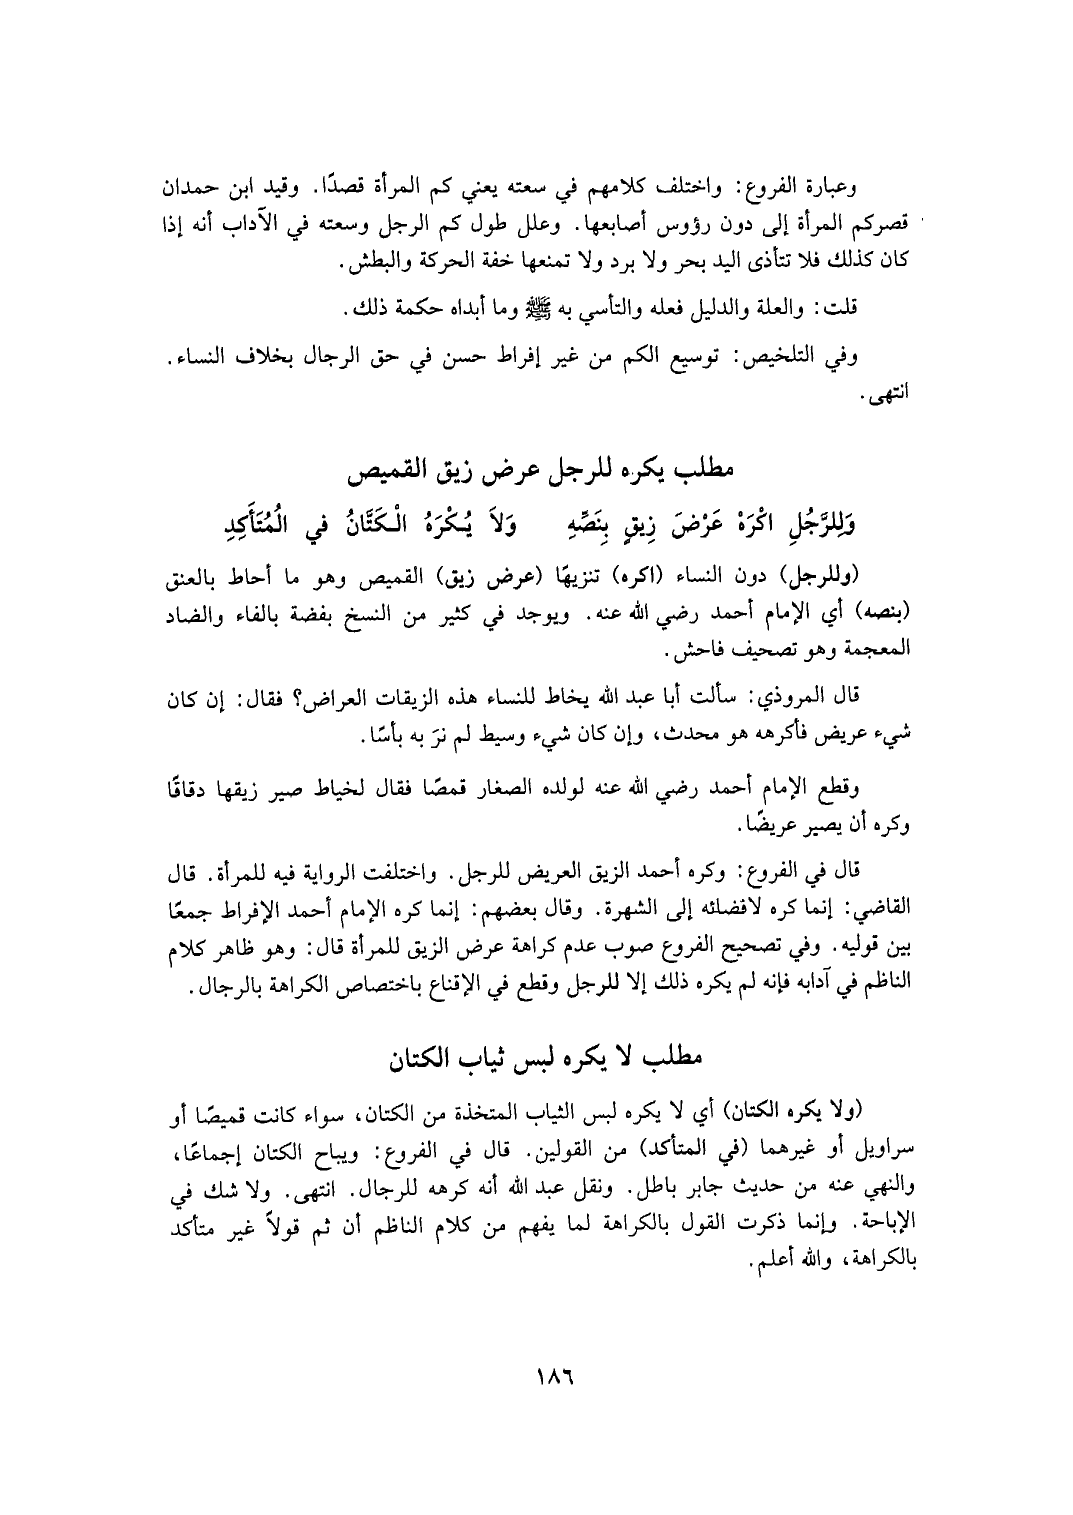 وعبارة الفروع: واختلف كلامهم في سعته يعني كم المرأة قصدًا. وقيد ابن حمدان
قصركم المرأة إلى دون رؤوس أصابعها. وعلل طول كم الرجل وسعته في الآداب أنه إذا
كان كذلك فلا تتأذى اليد بحر ولا برد ولا تمنعها خفة الحركة والبطش.
قلت: والعلة والدليل فعله والتأسي به ﷺ وما أبداه حكمة ذلك.
وفي التلخيص: توسيع الكم من غير إفراط حسن في حق الرجال بخلاف النساء.
انتهى.
مطلب يكره للرجل عرض زيق القميص
وَلِلرَّجُلِ اكْرَهْ عَرْضَ زِيقٍ بِنَصِّهِ وَلاَ يُكْرَهُ الْكَتَّانُ في الْمُتَأَكِدِ
(وللرجل) دون النساء (اكره) تنزيهًا (عرض زيق) القميص وهو ما أحاط بالعنق
(بنصه) أي الإمام أحمد رضي الله عنه. ويوجد في كثير من النسخ بفضة بالفاء والضاد
المعجمة وهو تصحيف فاحش.
قال المروذي: سألت أبا عبد الله يخاط للنساء هذه الزيقات العراض؟ فقال: إن كان
شيء عريض فأكرهه هو محدث، وإن كان شيء وسيط لم نرَ به بأسًا.
وقطع الإمام أحمد رضي الله عنه لولده الصغار قمصًا فقال لخياط صير زيقها دقاقًا
وكره أن يصير عريضًا.
قال في الفروع: وكره أحمد الزيق العريض للرجل. واختلفت الرواية فيه للمرأة. قال
القاضي: إنما كره لافضائه إلى الشهرة. وقال بعضهم: إنما كره الإمام أحمد الإفراط جمعًا
بين قوليه. وفي تصحيح الفروع صوب عدم كراهة عرض الزيق للمرأة قال: وهو ظاهر كلام
الناظم في آدابه فإنه لم يكره ذلك إلا للرجل وقطع في الإقناع باختصاص الكراهة بالرجال.
مطلب لا يكره لبس ثياب الكتان
(ولا يكره الكتان) أي لا يكره لبس الثياب المتخذة من الكتان، سواء كانت قميصًا أو
سراويل أو غيرهما (في المتأكد) من القولين. قال في الفروع: ويباح الكتان إجماعًا،
والنهي عنه من حديث جابر باطل. ونقل عبد الله أنه كرهه للرجال. انتهى. ولا شك في
الإباحة. وإنما ذكرت القول بالكراهة لما يفهم من كلام الناظم أن ثم قولاً غير متأكد
بالكراهة، والله أعلم.
١٨٦